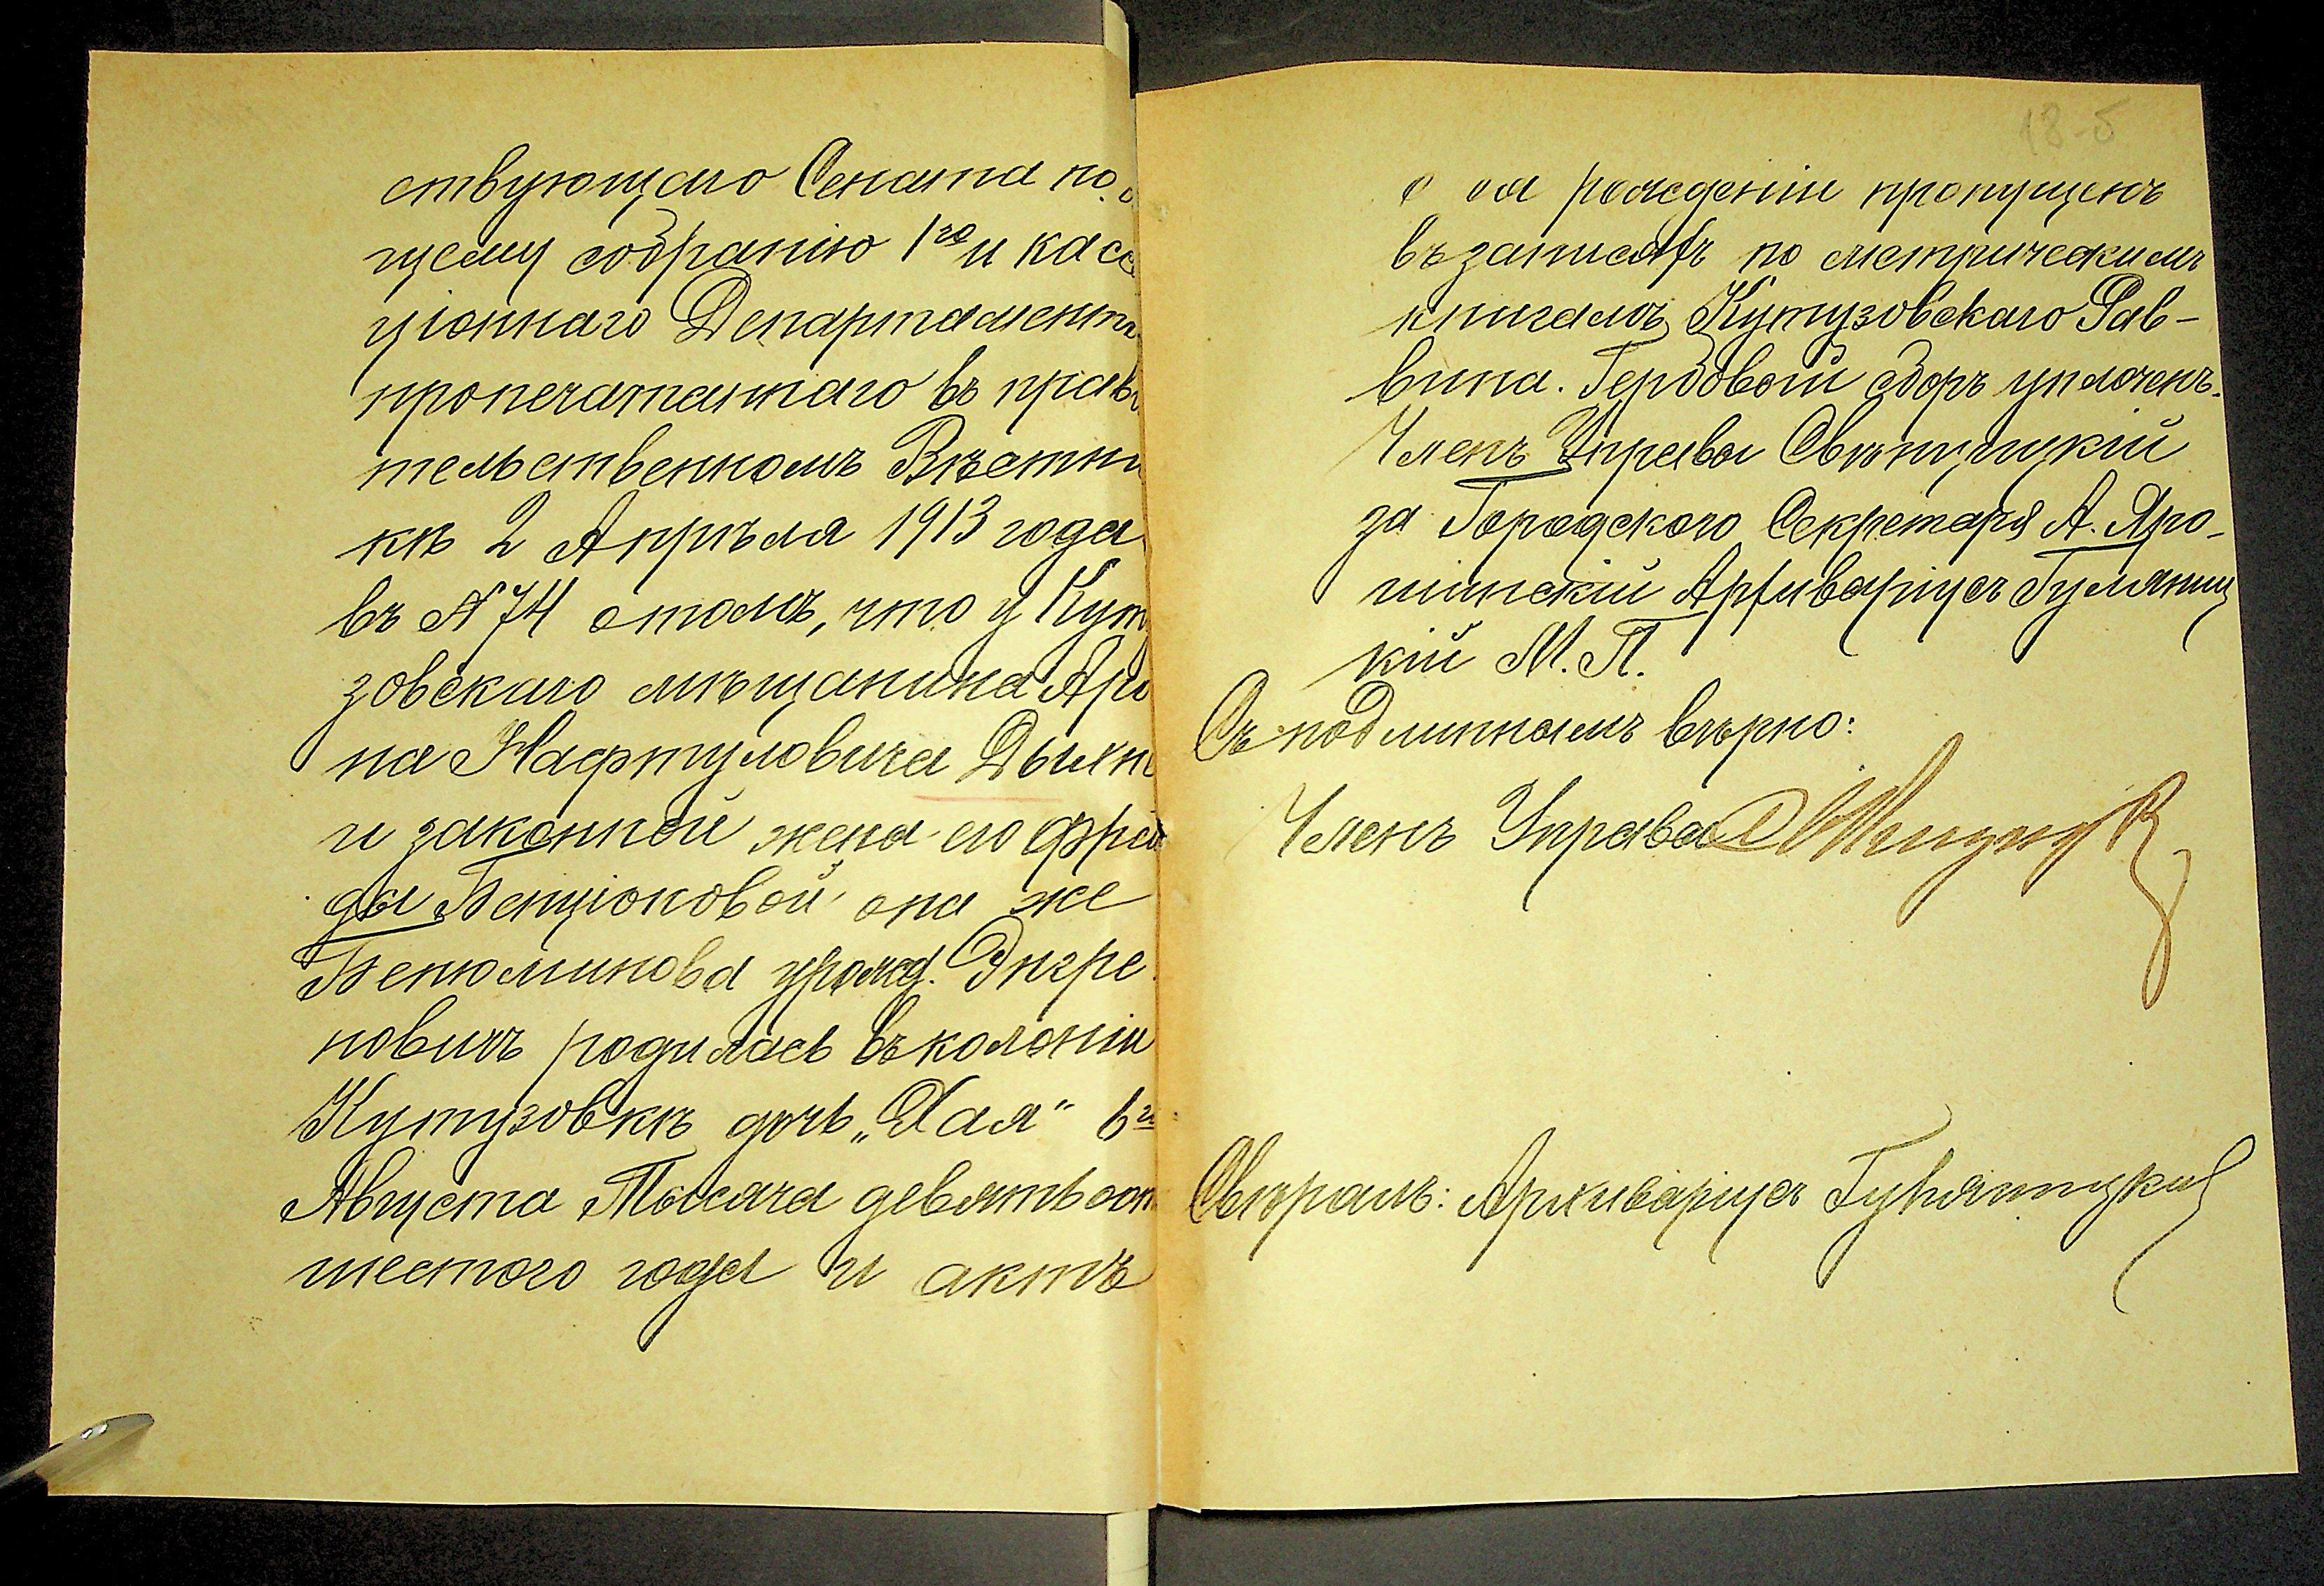 ствующаго Сената по о
щему собранію 1го и касс
ціоннаго Департамента
пропечатаннаго въ прави
тельственномъ Вѣстни
кѣ 2 Апрѣля 1913 года
въ № 74 о томъ, что у Куту
зовскаго мѣщанина Аро
на Нафтуловича Дымн
и законной жены его Фрей
ды Бенціоновой она же
Бенюминова урожд. Энгре
новичъ родилась въ колоніи
Кутузовкѣ дочь „Хая“ 6го
Августа Тысяча девятьсот
шестого года и актъ
18-б
о ея рожденіи пропущенъ
въ записяхъ по метрическимъ
книгамъ Кутузовскаго Рав-
вина. Гербовый сборъ уплоченъ.
Членъ Управы
за Городского Секретаря А. Яро-
шинскій Архиваріусъ Гулянищ
кій М. П.
Съ подлиннымъ вѣрно:
Членъ Управы
Свѣрялъ: Архиваріусъ